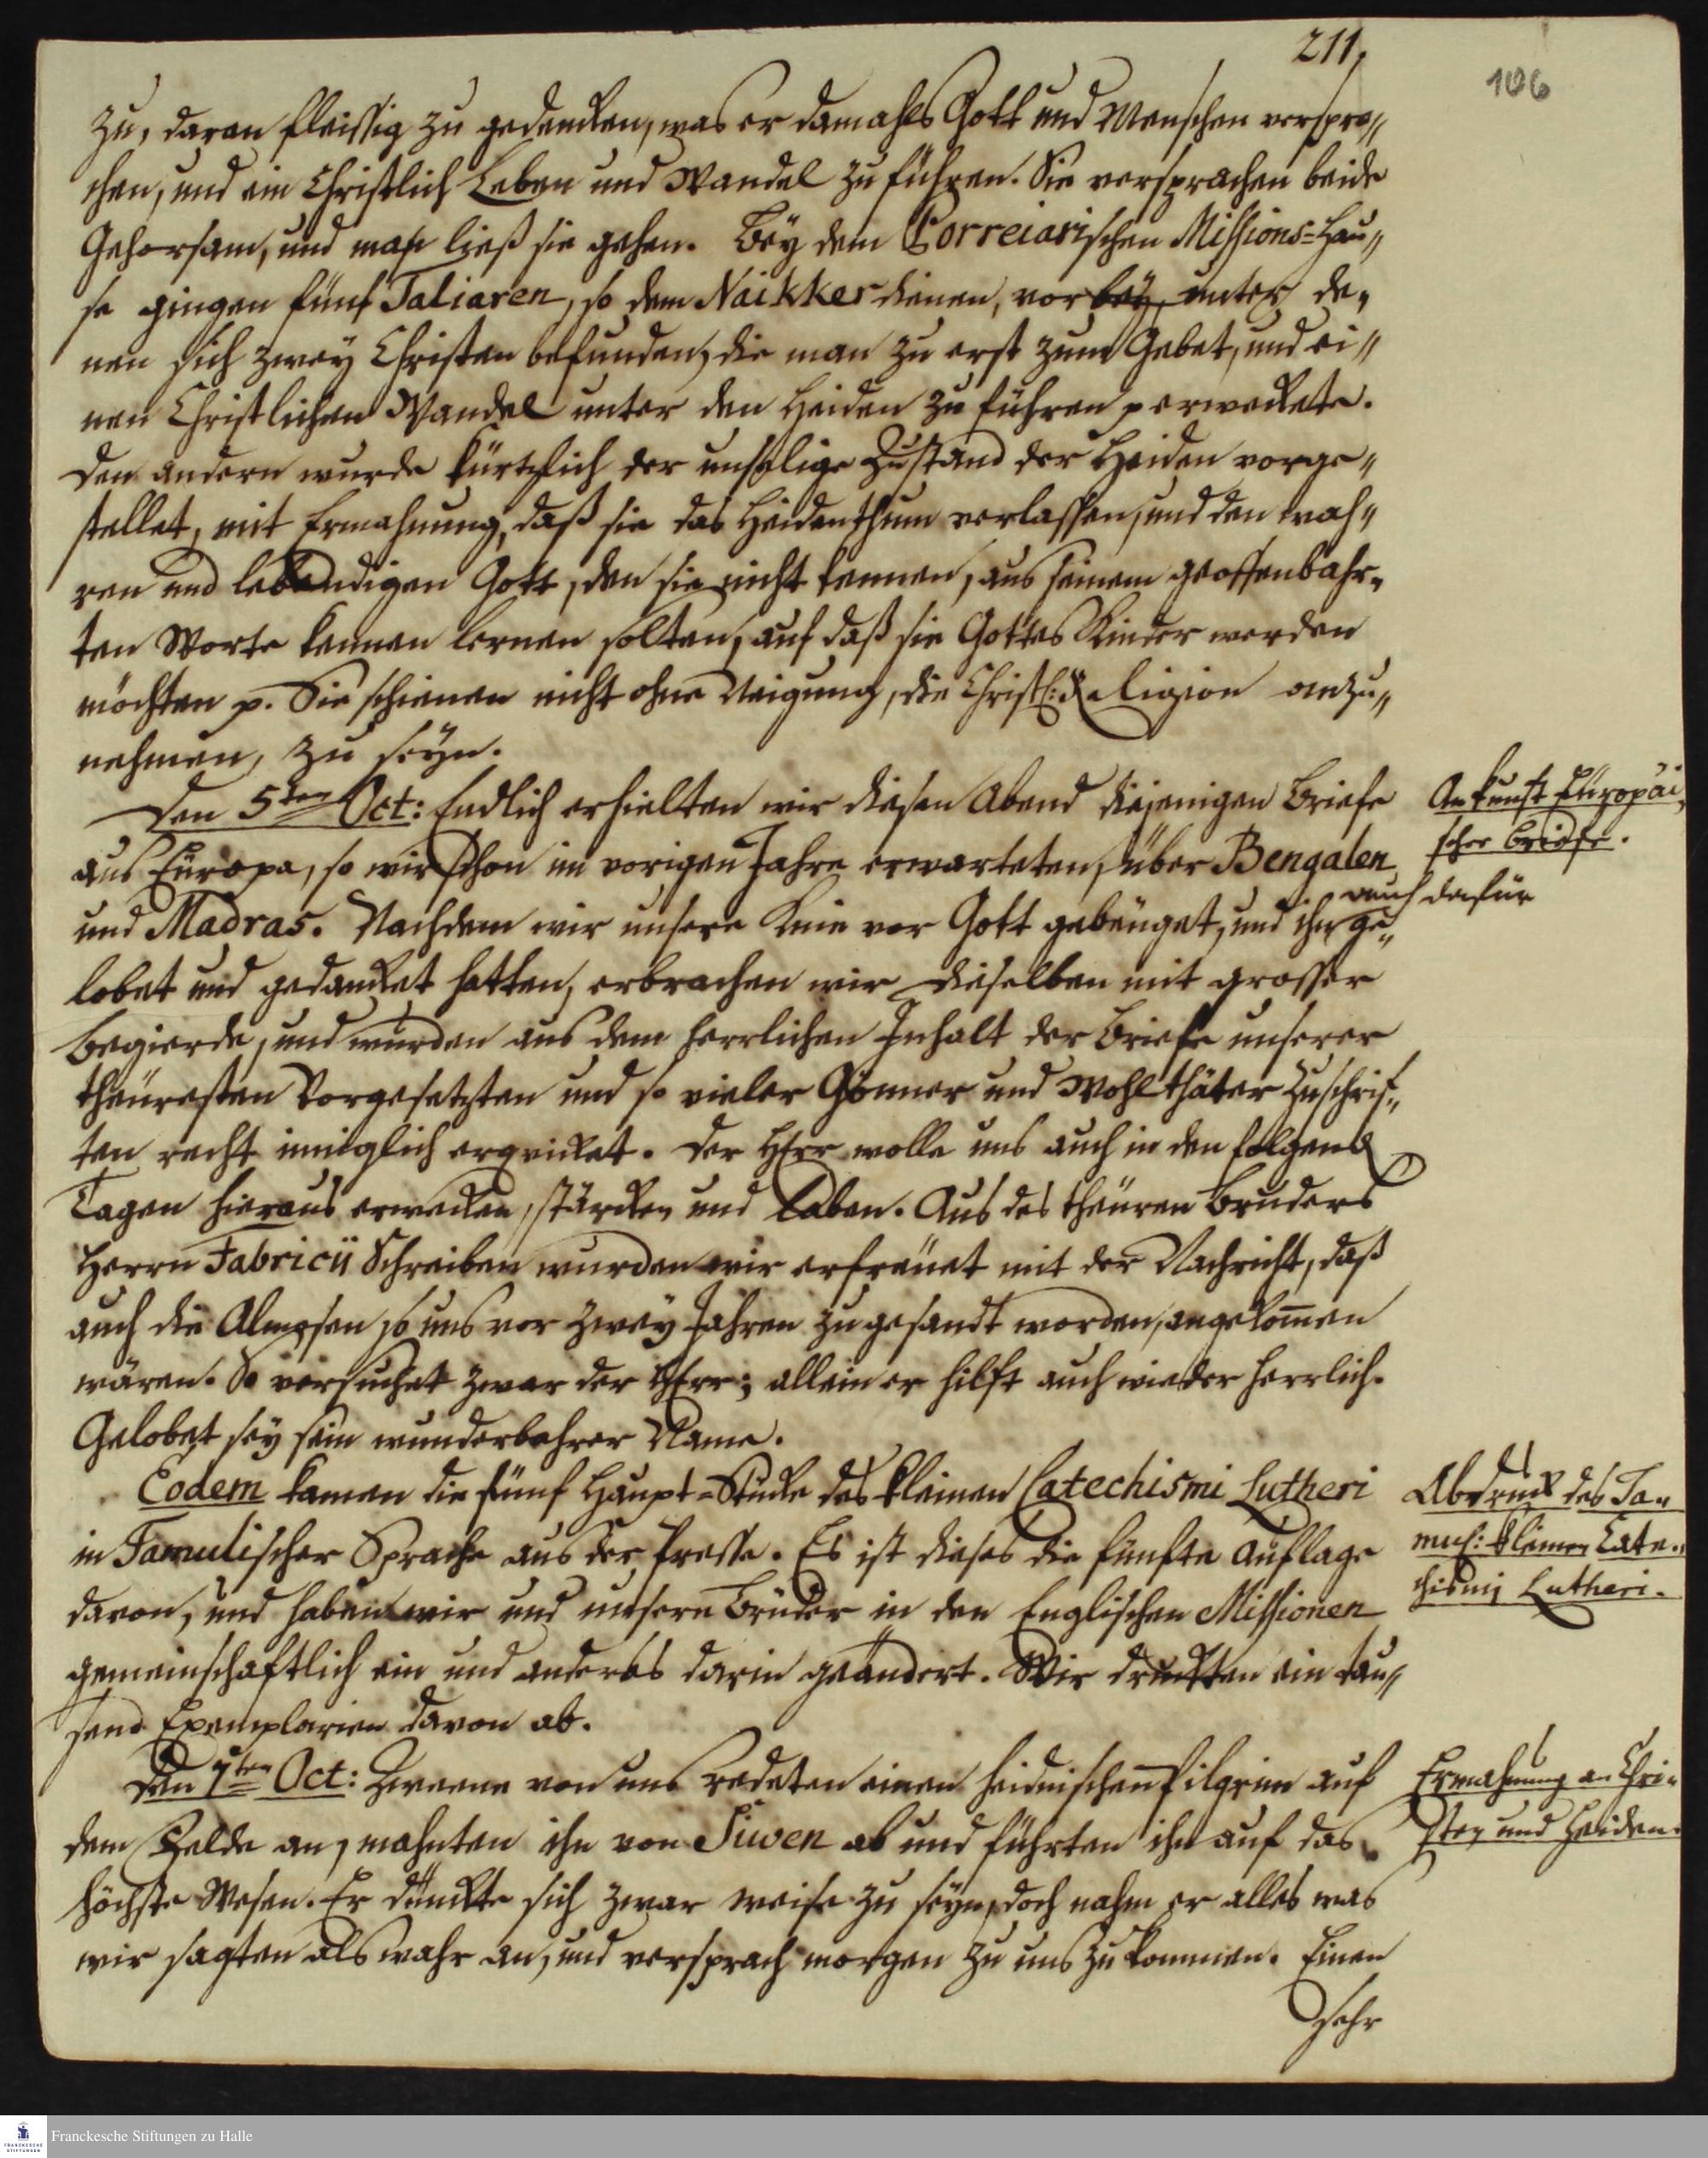 211.
106
zu, daran fleissig zu gedencken, was er damahls Gott und Menschen verspro„
chen, und ein Christlich Leben und Wandel zu führen. Sie versprachen beide
Gehorsam, und man ließ sie gehen. Bey dem Porreiarischen Missions-Hau„
se gingen fünf Taliaren, so dem Naikker dienen, vorbey, unter de„
nen sich zwey Christen befunden, die man zu erst zum Gebet, und ei„
nen Christlichen Wandel unter den Heiden zu führen p erweckete.
Den andern wurde kürtzlich der unselige Zustand der Heiden vorge„
stellet, mit Ermahnung, daß sie das Heidenthum verlassen, und den wah„
ren und lebendigen Gott, den sie nicht kennen, aus seinem geoffenbahr„
ten Worte kennen lernen solten, auf daß sie Gottes Kinder werden
möchten p. Sie schienen nicht ohne Neigung, die Christl: Religion anzu„
nehmen, zu seyn.
Den 5ten Oct: Endlich erhielten wir diesen Abend diejenigen Briefe
aus Europa, so wir schon im vorigen Jahre erwarteten, über Bengalen
und Madras. Nachdem wir unsere Knie vor Gott gebeuget, und ihn auch dafür ge„
lobet und gedancket hatten, erbrachen wir dieselben mit grosser
Begierde, und wurden aus dem herrlichen Inhalt der Briefe unserer
theuresten Vorgesetzten und so vieler Gönner und Wohlthäter Zuschrif„
ten recht inniglich erquicket. Der HErr wolle uns auch in den folgend
Tagen hieraus erwecken, stärcken und laben. Aus des theuren Bruders
Herrn Fabricii Schreiben wurden wir erfreuet mit der Nachricht, daß
auch die Almosen so uns vor zwey Jahren zugesandt worden, angekom̅en
wären. So versuchet zwar der HErr; allein er hilft auch wieder herrlich.
Gelobet sey sein wunderbahrer Name.
Eodem kamen die fünf Haupt-Stücke des kleinen Catechismi Lutheri
in Tamulischer Sprache aus der Presse. Es ist dieses die fünfte Auflage
davon, und haben wir und unsere Brüder in den Englischen Missionen
gemeinschaftlich ein und anderes darin geändert. Wir druckten ein tau„
send Exemplarien davon ab.
Den 7ten Oct: Zweene von uns redeten einen heidnischen Pilgrim auf
dem Felde an, mahnten ihn von Siwen ab und führten ihn auf das
höchste Wesen. Er dünckte sich zwar weise zu seyn, doch nahm er alles was
wir sagten als wahr an, und versprach morgen zu uns zu kommen. Einen
sehr
Ankunft Europäi„
scher Briefe.
Abdruck des Ta„
mul: kleinen Cate„
chismi Lutheri.
Ermahnung an Chri„
sten und Heiden.
Franckesche Stiftungen zu Halle
FRANCKESCHE
STIFTUNGEN